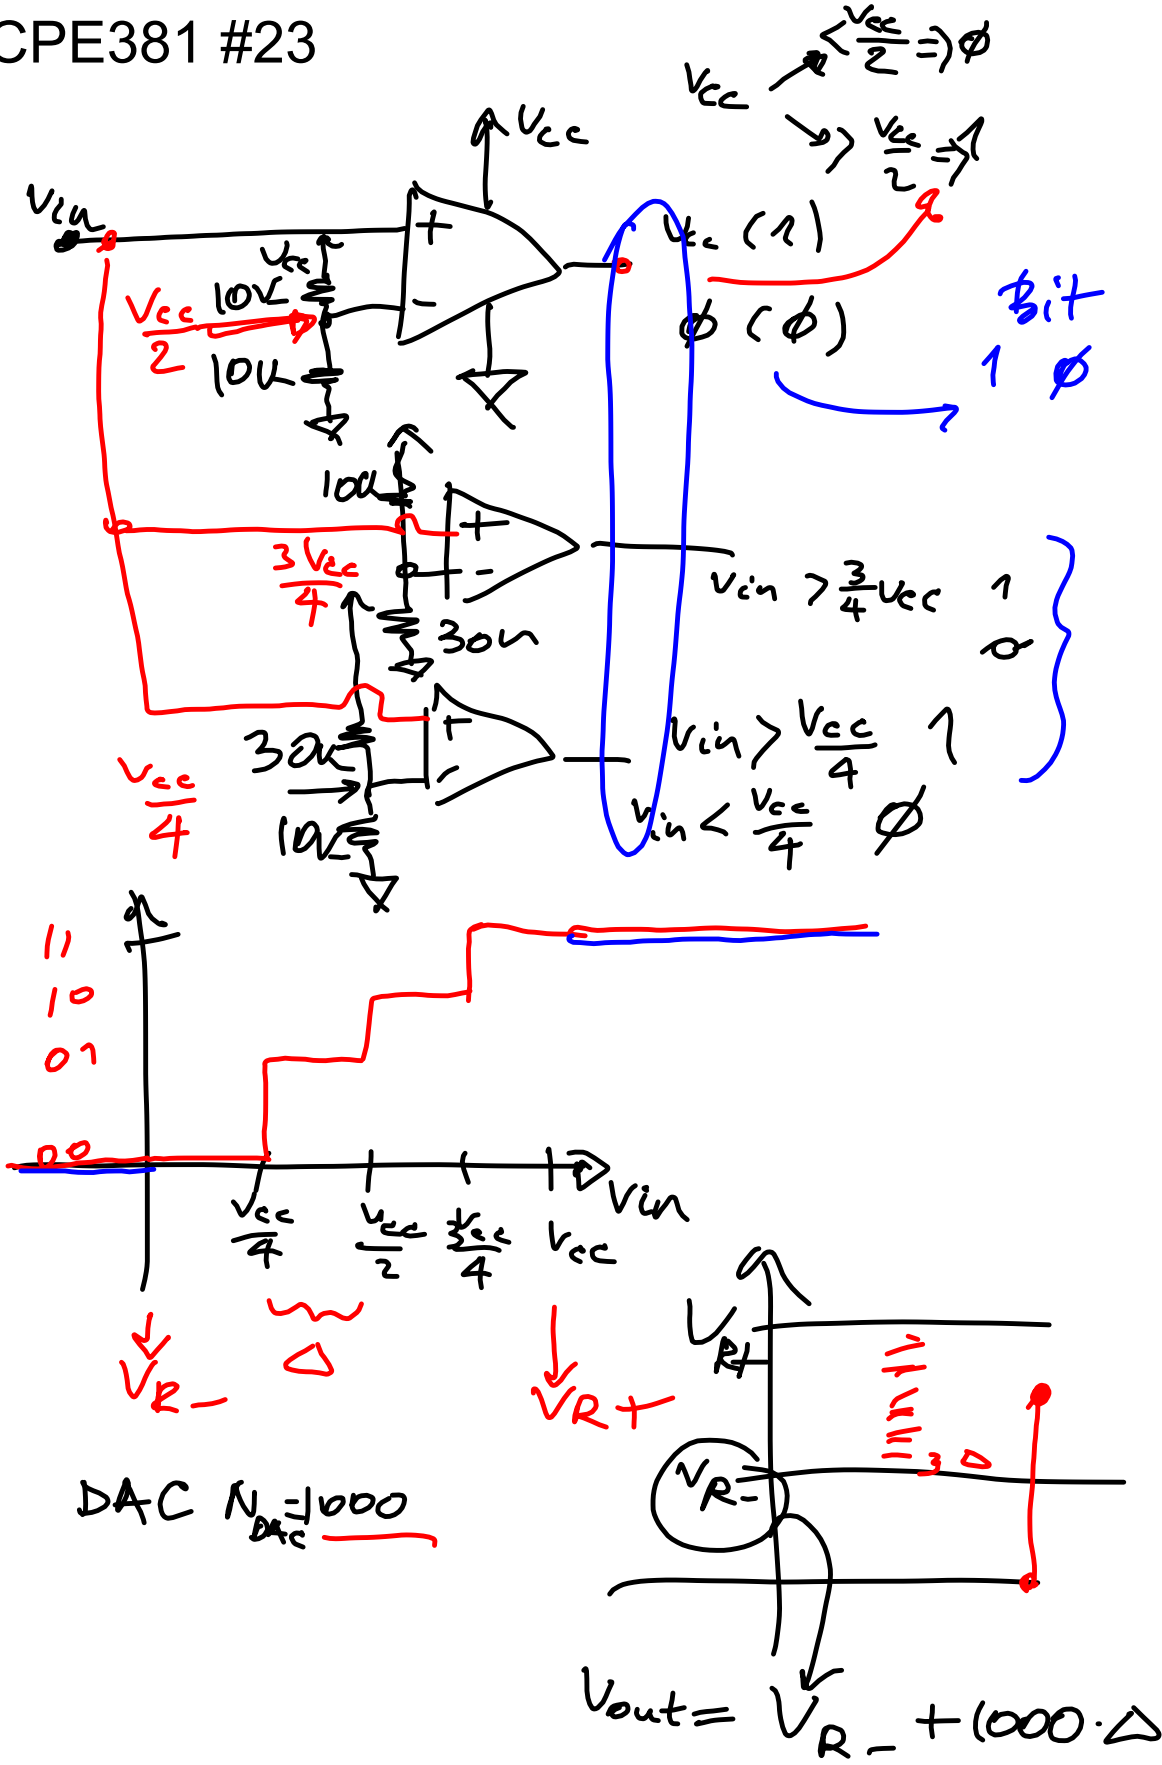 CPE381 #23
Vcc < Vcc/2 => Ø
> Vcc/2 => 1
Vcc
Vin
+
-
Vcc
10K
Vcc/2
10K
Vcc (1)
Ø (Ø)
Bit
1 Ø
10K
+
-
3Vcc/4
30K
Vin > 3/4 Vcc 1
0
30K
+
-
Vcc/4
10K
Vin > Vcc/4 1
Vin < Vcc/4 Ø
11
10
01
00
Vcc/4 Vcc/2 3Vcc/4 Vcc
Vin
Δ
VR- VR+
VR+
VR-
DAC NDAC=1000
Vout = VR- + 1000·Δ